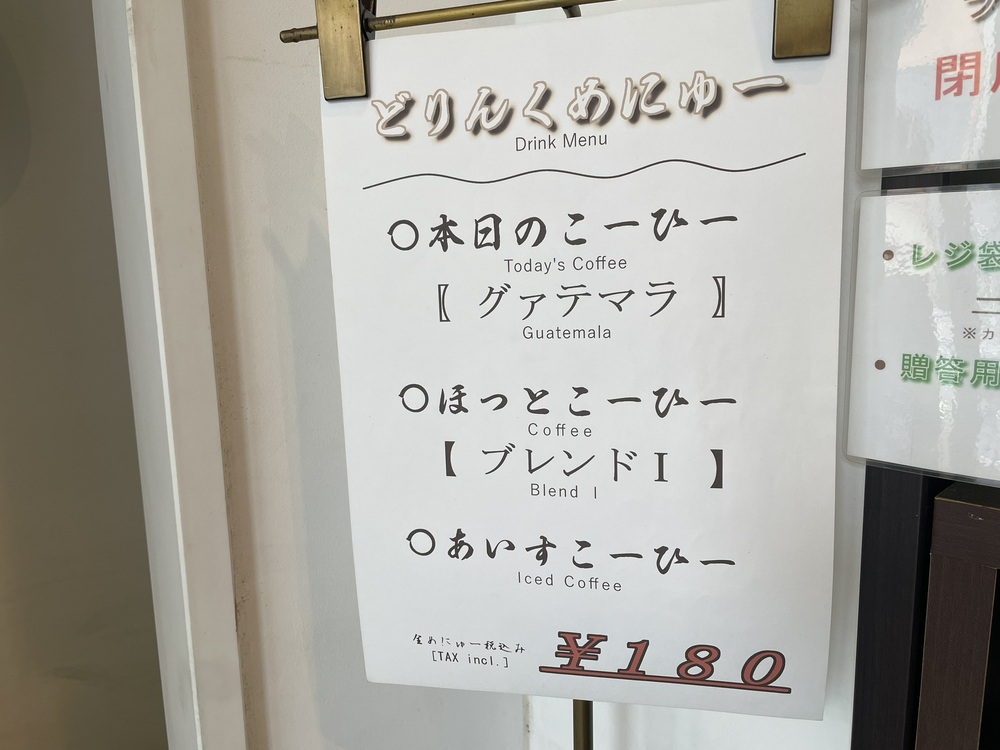 どりんくめにゅー
Drink Menu
〇本日のこーひー
Today's Coffee
〖 グァテマラ 〗
Guatemala
〇ほっとこーひー
Coffee
【 ブレンドI 】
Blend I
〇あいすこーひー
Iced Coffee
全めにゅー税込み
[TAX incl.]
¥180
閉
・レジ袋
※カ
・贈答用